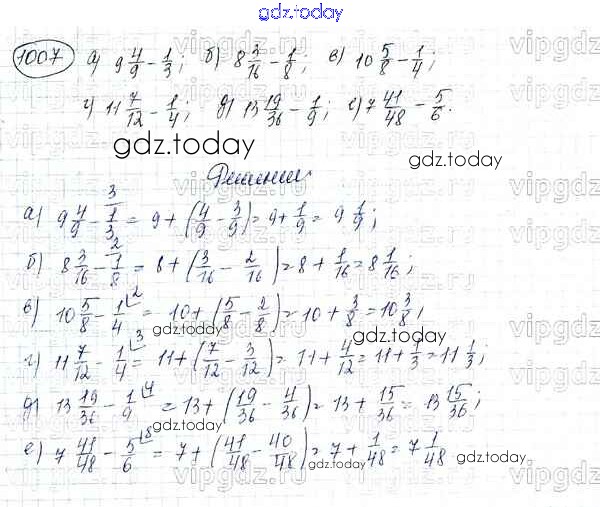 gdz.today
1007 а) 9 4/9 - 1/3; б) 8 3/16 - 1/8; в) 10 5/8 - 1/4;
г) 11 7/12 - 1/4; д) 13 19/36 - 1/9; е) 7 41/48 - 5/6.
gdz.today gdz.today
Решение
а) 9 4/9 - 1/3 \3 = 9 + (4/9 - 3/9) = 9 + 1/9 = 9 1/9;
б) 8 3/16 - 1/8 \2 = 8 + (3/16 - 2/16) = 8 + 1/16 = 8 1/16;
в) 10 5/8 - 1/4 \2 = 10 + (5/8 - 2/8) = 10 + 3/8 = 10 3/8;
gdz.today gdz.today
г) 11 7/12 - 1/4 \3 = 11 + (7/12 - 3/12) = 11 + 4/12 = 11 + 1/3 = 11 1/3;
д) 13 19/36 - 1/9 \4 = 13 + (19/36 - 4/36) = 13 + 15/36 = 13 15/36;
е) 7 41/48 - 5/6 \8 = 7 + (41/48 - 40/48) = 7 + 1/48 = 7 1/48.
gdz.today gdz.today
vipgdz.com